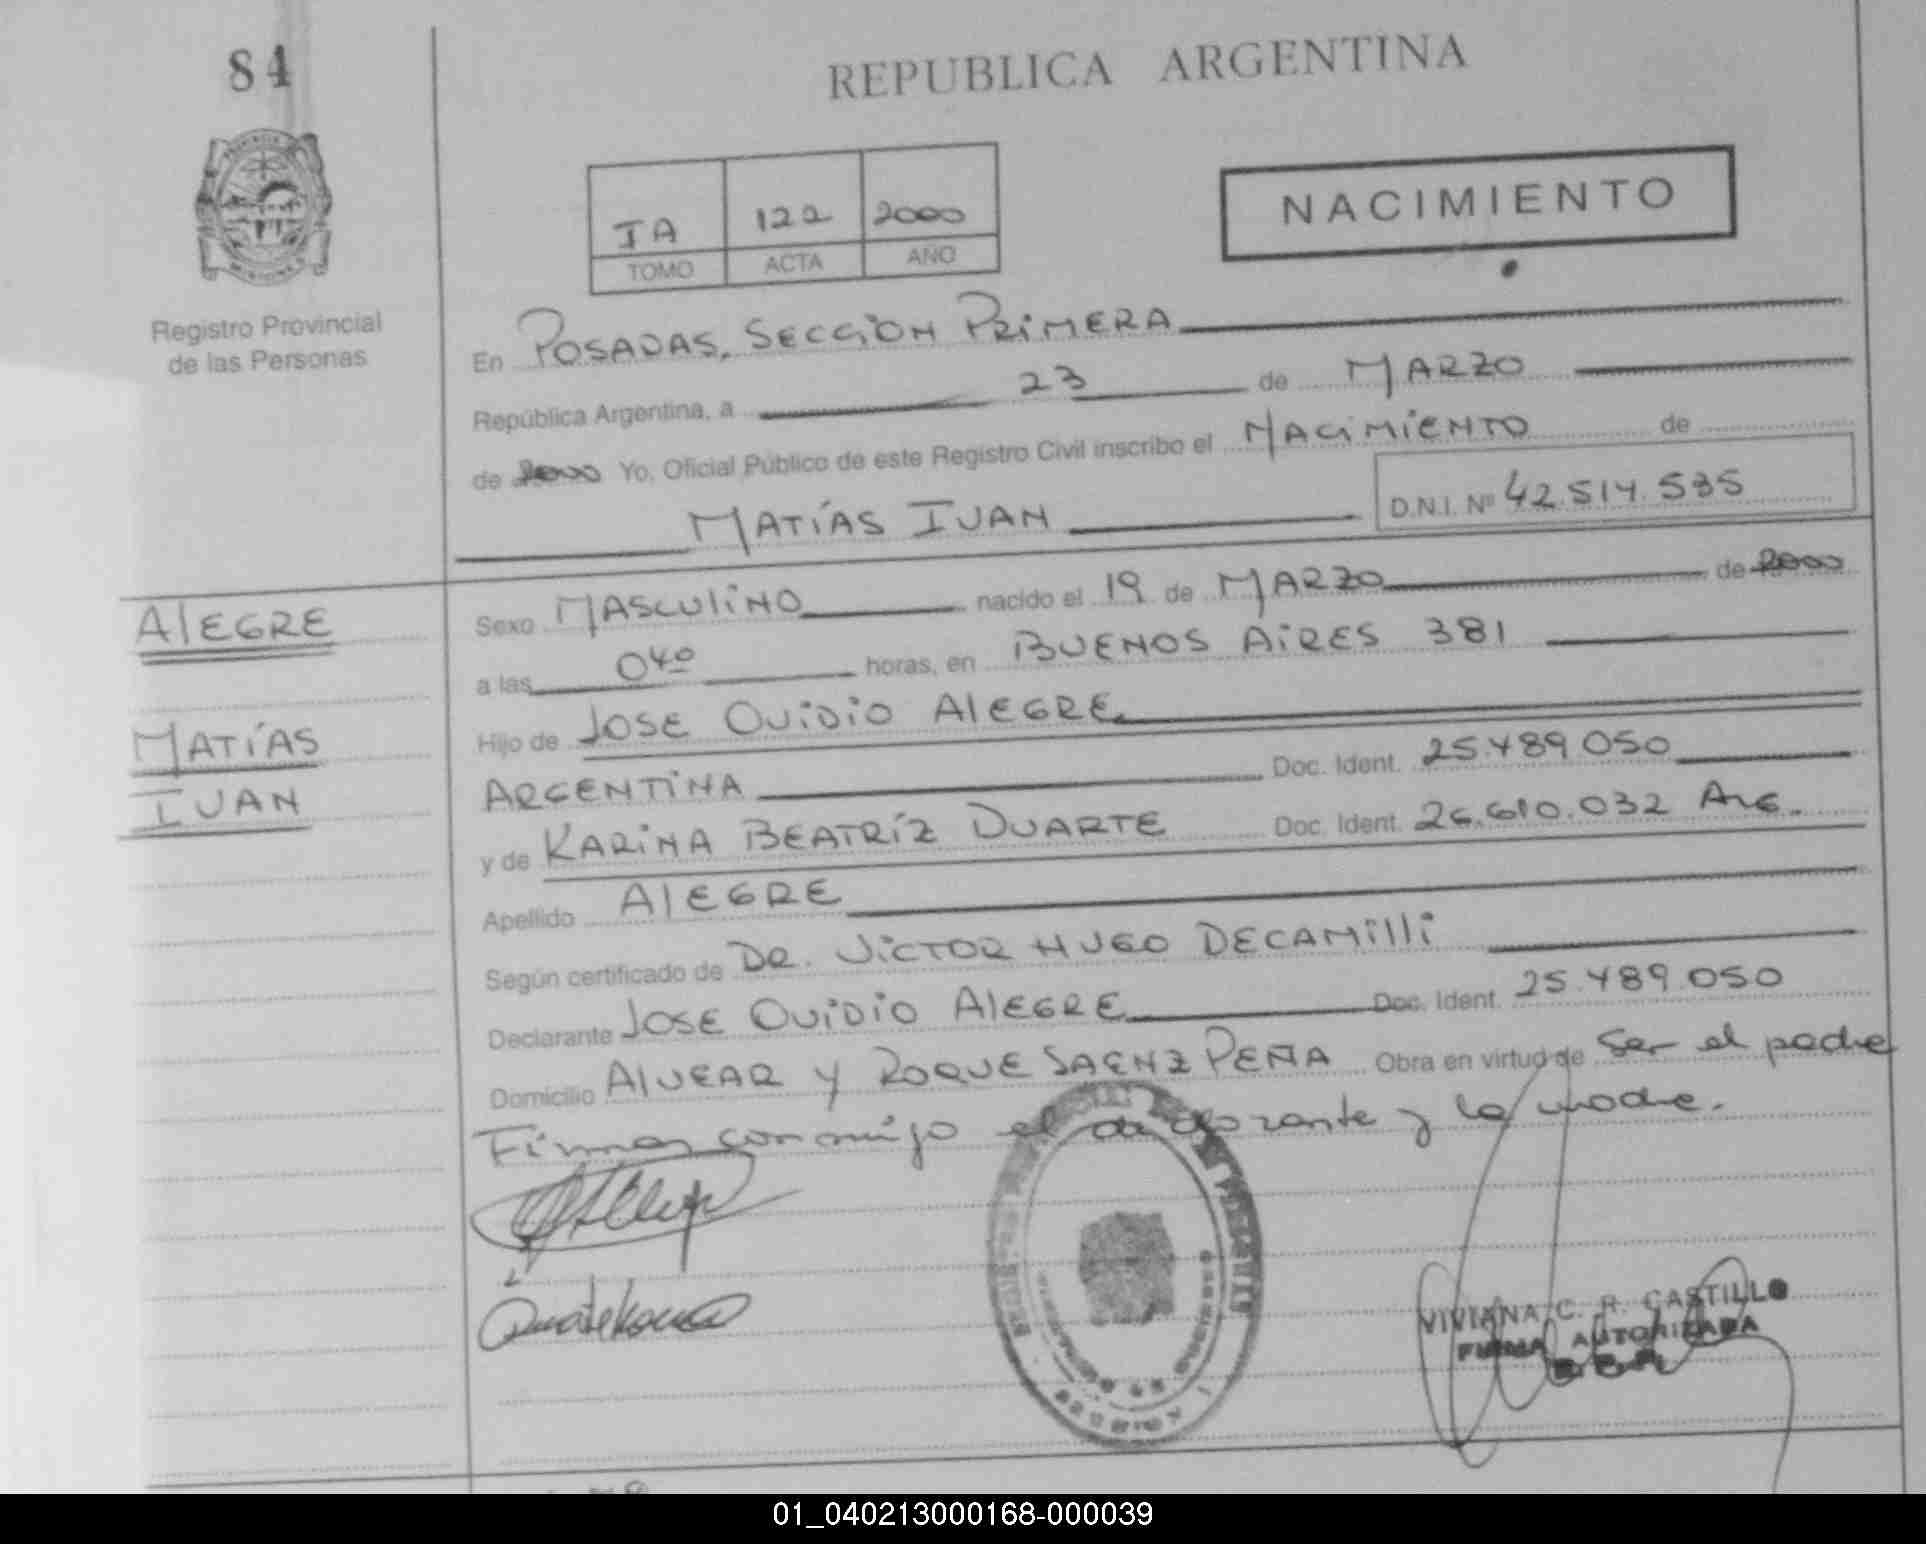 84
REPUBLICA ARGENTINA
IA 122 2000
TOMO ACTA AÑO
NACIMIENTO
Registro Provincial
de las Personas
En POSADAS, SECCION PRIMERA
República Argentina, a 23 de MARZO
de 2000 Yo, Oficial Público de este Registro Civil inscribo el NACIMIENTO de
MATÍAS IVAN D.N.I. Nº 42.514.535
ALEGRE
MATÍAS
IVAN
Sexo MASCULINO nacido el 19 de MARZO de 2000
a las 04º horas, en BUENOS AIRES 381
Hijo de JOSE OVIDIO ALEGRE
ARGENTINA Doc. Ident. 25.489.050
y de KARINA BEATRÍZ DUARTE Doc. Ident. 26.610.032 ARG.
Apellido ALEGRE
Según certificado de DR. VICTOR HUGO DECAMILLI
Declarante JOSE OVIDIO ALEGRE Doc. Ident. 25.489.050
Domicilio ALVEAR Y ROQUE SAENZ PEÑA Obra en virtud de ser el padre
Firman conmigo el declarante y la madre.
VIVIANA C. R. CASTILLO
FIRMA AUTORIZADA
01_040213000168-000039